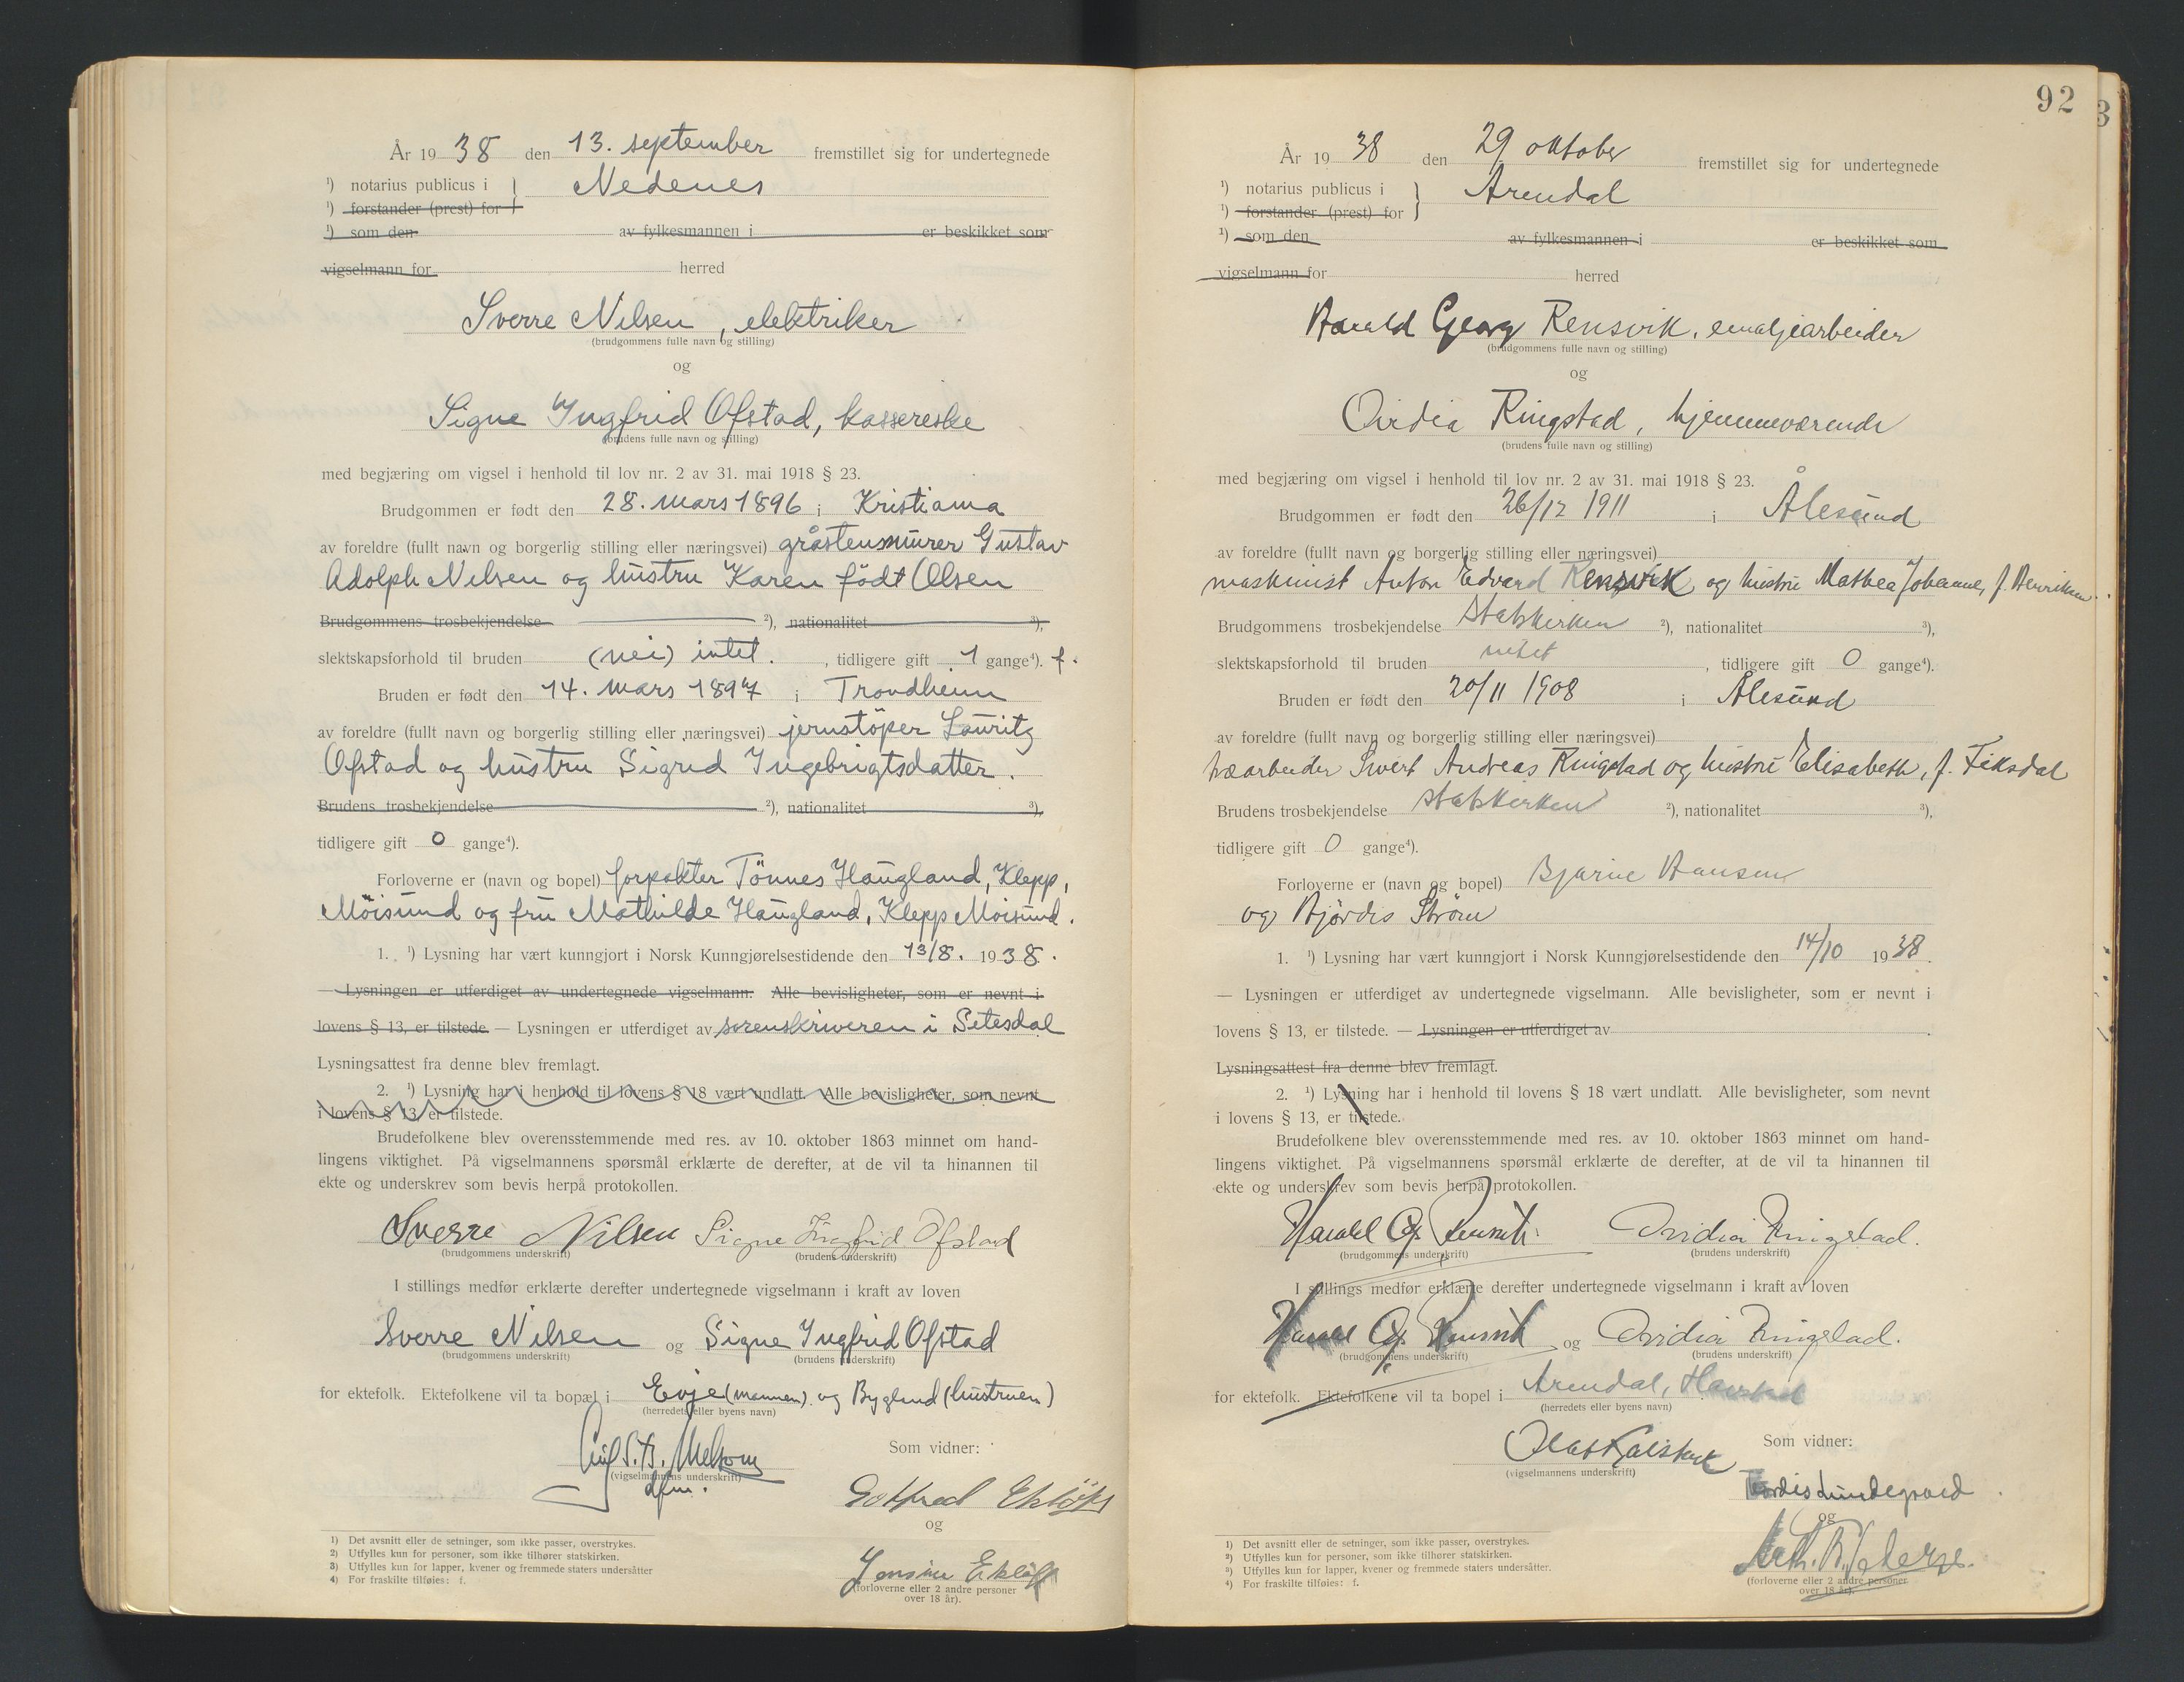 År 19 38 den 13. september fremstillet sig for undertegnede
¹) notarius publicus i } Nedenes
¹) forstander (prest) for
¹) som den av fylkesmannen i er beskikket som
vigselmann for herred
Sverre Nilsen, elektriker
(brudgommens fulle navn og stilling)
og
Signe Ingfrid Ofstad, kassereske
(brudens fulle navn og stilling)
med begjæring om vigsel i henhold til lov nr. 2 av 31. mai 1918 § 23.
Brudgommen er født den 28. mars 1896 i Kristiania
av foreldre (fullt navn og borgerlig stilling eller næringsvei) gråstensmurer Gustav
Adolph Nilsen og hustru Karen født Olsen
Brudgommens trosbekjendelse ²), nationalitet ³),
slektskapsforhold til bruden (nei) intet. , tidligere gift 1 gange⁴). f.
Bruden er født den 14. mars 1897 i Trondheim
av foreldre (fullt navn og borgerlig stilling eller næringsvei) jernstöper Lauritz
Ofstad og hustru Sigrid Ingebrigtsdatter.
Brudens trosbekjendelse ²), nationalitet ³),
tidligere gift 0 gange⁴).
Forloverne er (navn og bopel) forpakter Tönnes Haugland, Klepp,
Möisund og fru Mathilde Haugland, Klepp Moisund.
1. ¹) Lysning har vært kunngjort i Norsk Kunngjørelsestidende den 13/8. 1938.
— Lysningen er utferdiget av undertegnede vigselmann. Alle bevisligheter, som er nevnt i
lovens § 13, er tilstede. — Lysningen er utferdiget av sorenskriveren i Setesdal
Lysningsattest fra denne blev fremlagt.
2. ¹) Lysning har i henhold til lovens § 18 vært undlatt. Alle bevisligheter, som nevnt
i lovens § 13, er tilstede.
Brudefolkene blev overensstemmende med res. av 10. oktober 1863 minnet om hand-
lingens viktighet. På vigselmannens spørsmål erklærte de derefter, at de vil ta hinannen til
ekte og underskrev som bevis herpå protokollen.
Sverre Nilsen Signe Ingfrid Ofstad
(brudgommens underskrift) (brudens underskrift)
I stillings medfør erklærte derefter undertegnede vigselmann i kraft av loven
Sverre Nilsen og Signe Ingfrid Ofstad
(brudgommens underskrift) (brudens underskrift)
for ektefolk. Ektefolkene vil ta bopæl i Evje (mannen) og Bygland (hustruen)
(herredets eller byens navn)
(vigselmannens underskrift)
Som vidner:
dfm.
og
Jensine Eklöff
(forloverne eller 2 andre personer
over 18 år).
1) Det avsnitt eller de setninger, som ikke passer, overstrykes.
2) Utfylles kun for personer, som ikke tilhører statskirken.
3) Utfylles kun for lapper, kvener og fremmede staters undersåtter
4) For fraskilte tilføies: f.
92
3
År 19 38 den 29 oktober fremstillet sig for undertegnede
¹) notarius publicus i } Arendal
¹) forstander (prest) for
¹) som den av fylkesmannen i er beskikket som
vigselmann for herred
Harald Georg Rensvik, emaljearbeider
(brudgommens fulle navn og stilling)
og
Ovidia Ringstad, hjemmeværende
(brudens fulle navn og stilling)
med begjæring om vigsel i henhold til lov nr. 2 av 31. mai 1918 § 23.
Brudgommen er født den 26/12 1911 i Ålesund
av foreldre (fullt navn og borgerlig stilling eller næringsvei)
maskinist Anton Edvard Rensvik og hustru Mathea Johanne, f. Henriksen.
Brudgommens trosbekjendelse statskirken ²), nationalitet ³),
slektskapsforhold til bruden intet , tidligere gift 0 gange⁴).
Bruden er født den 20/11 1908 i Ålesund
av foreldre (fullt navn og borgerlig stilling eller næringsvei)
træarbeider Sivert Andreas Ringstad og hustru Elisabeth, f. Fiksdal
Brudens trosbekjendelse statskirken ²), nationalitet ³),
tidligere gift 0 gange⁴).
Forloverne er (navn og bopel) Bjarne Hansen
og Hjördis Strøm
1. ¹) Lysning har vært kunngjort i Norsk Kunngjørelsestidende den 14/10 1938.
— Lysningen er utferdiget av undertegnede vigselmann. Alle bevisligheter, som er nevnt i
lovens § 13, er tilstede. — Lysningen er utferdiget av
Lysningsattest fra denne blev fremlagt.
2. ¹) Lysning har i henhold til lovens § 18 vært undlatt. Alle bevisligheter, som nevnt
i lovens § 13, er tilstede.
Brudefolkene blev overensstemmende med res. av 10. oktober 1863 minnet om hand-
lingens viktighet. På vigselmannens spørsmål erklærte de derefter, at de vil ta hinannen til
ekte og underskrev som bevis herpå protokollen.
Harald G. Rensvik. Ovidia Ringstad.
(brudgommens underskrift) (brudens underskrift)
I stillings medfør erklærte derefter undertegnede vigselmann i kraft av loven
Harald G. Rensvik og Ovidia Ringstad.
(brudgommens underskrift) (brudens underskrift)
for ektefolk. Ektefolkene vil ta bopel i Arendal,
(herredets eller byens navn)
(vigselmannens underskrift)
Som vidner:
Tordis Lundegaard
og
(forloverne eller 2 andre personer
over 18 år).
1) Det avsnitt eller de setninger, som ikke passer, overstrykes.
2) Utfylles kun for personer, som ikke tilhører statskirken.
3) Utfylles kun for lapper, kvener og fremmede staters undersåtter.
4) For fraskilte tilføies: f.